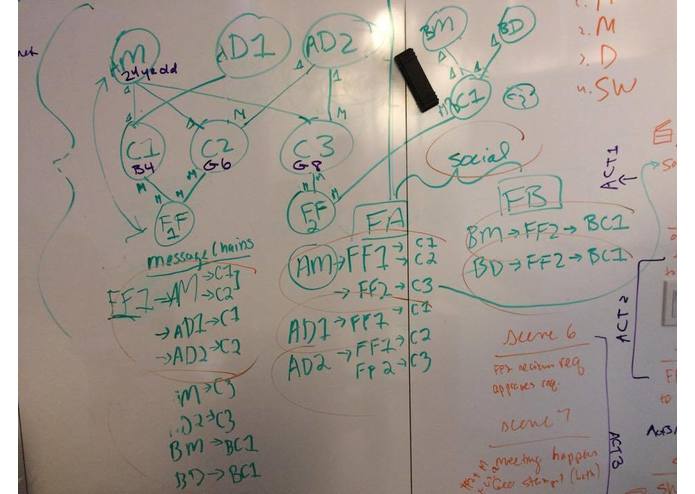 AM
24 yr old
AD1
AD2
BM
BD
M
2. M
3. D
4. SW
1
1
1
1
M
M
C1
B4
C2
G6
C3
G8
BC1
M
M
M
M
FF
1
FF
2
social
ACT1
message Chains
FF1 → AM → C1
→ C2
→ AD1 → C1
→ AD2 → C2
M → C3
D2 → C3
BM → BC1
BD → BC1
FA
AM → FF1 → C1
→ C2
→ FF2 → C3
AD1 → FF1 → C1
AD2 → FF1 → C2
FF2 → C3
FB
BM → FF2 → BC1
BD → FF2 → BC1
ACT 2
scene 6
approves req.
scene 7
meeting happens
ACT3